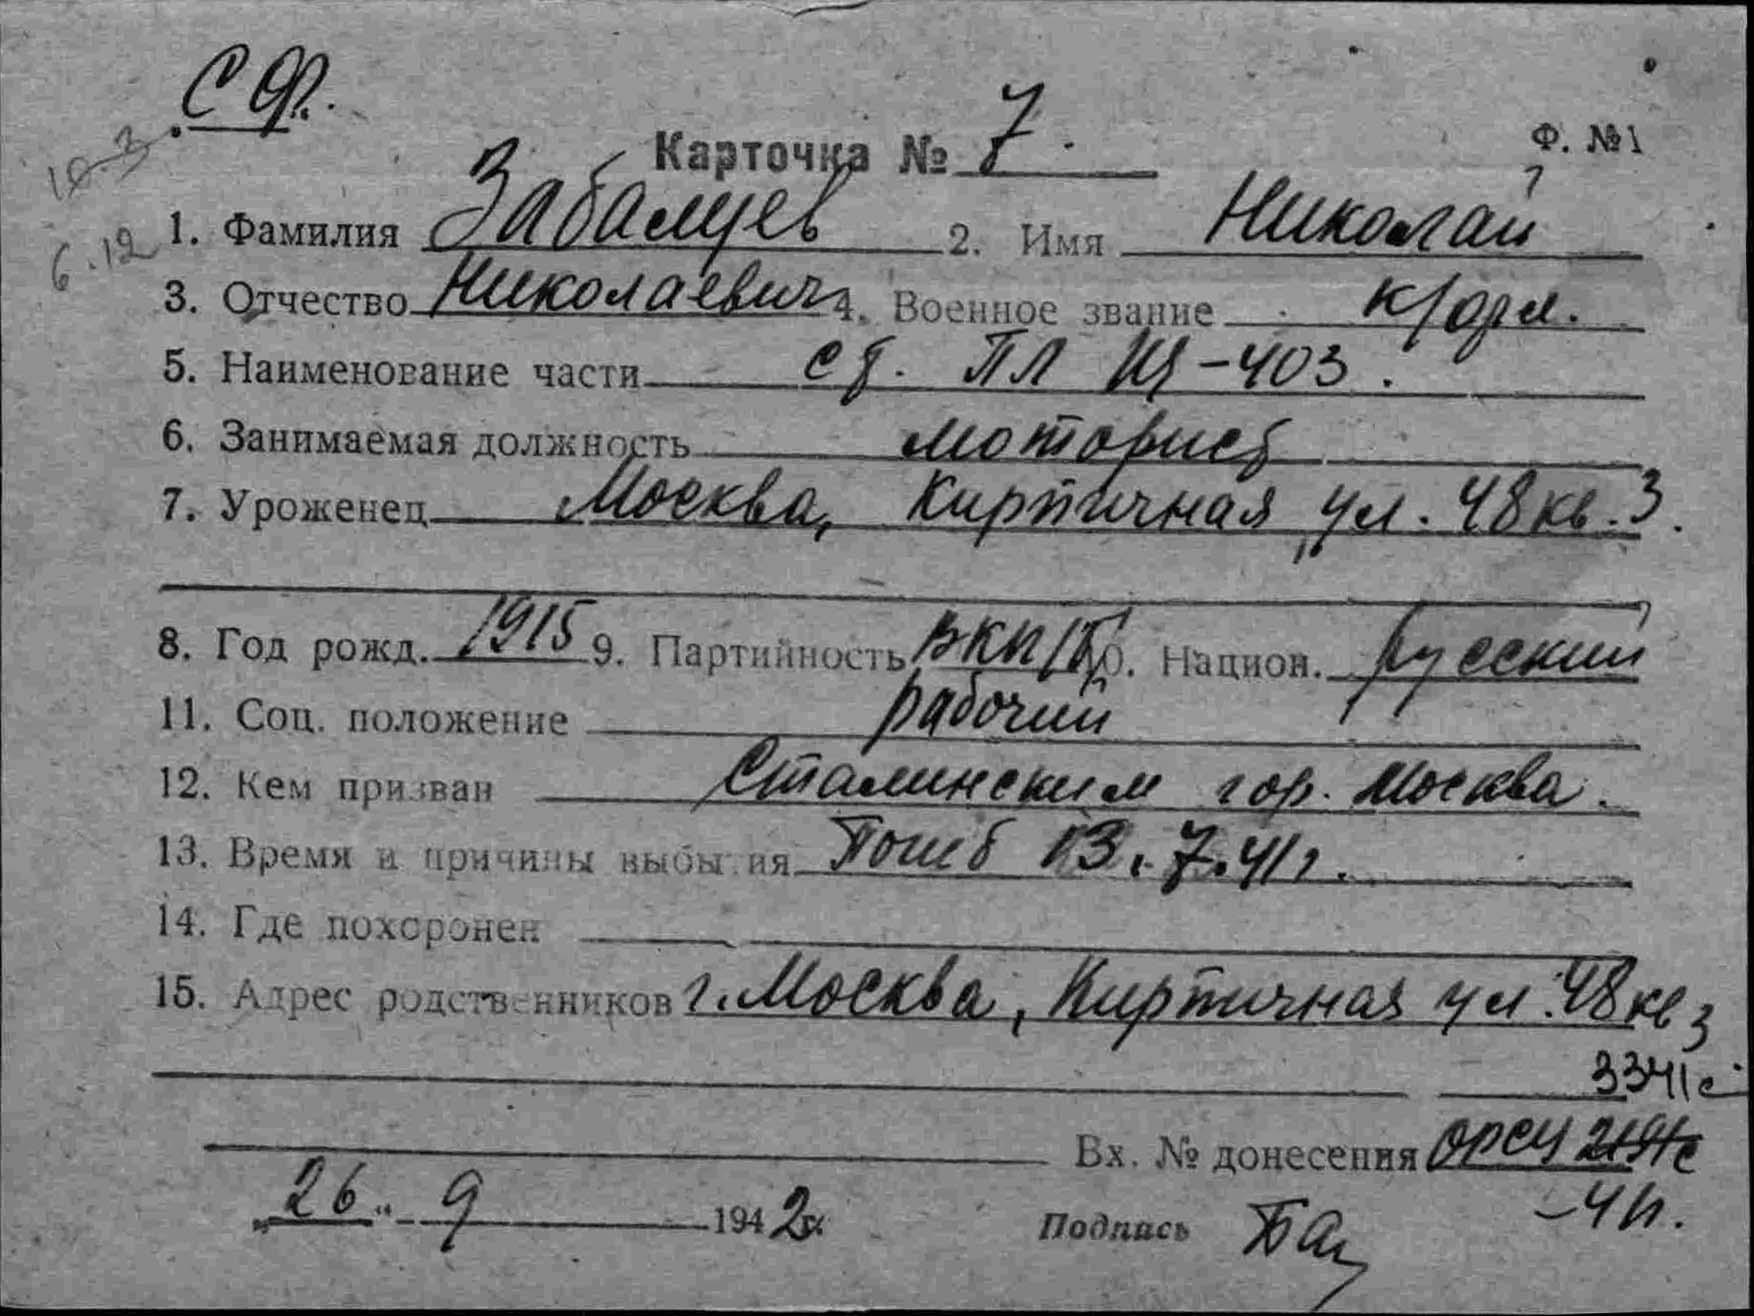 С Ф.
10-3
Карточка № 7.
Ф. № 1
6.12
1. Фамилия Забалуев 2. Имя Николай
3. Отчество Николаевич 4. Военное звание к/фл.
5. Наименование части ст. ПЛ Щ-403.
6. Занимаемая должность моторист
7. Уроженец Москва, Кирпичная ул. 48 кв. 3.
8. Год рожд. 1915 9. Партийность ВКП/б/ 10. Национ. русский
11. Соц. положение рабочий
12. Кем призван Сталинским гор. Москва.
13. Время и причины выбытия Погиб 13.7.41г.
14. Где похоронен
15. Адрес родственников г. Москва, Кирпичная ул. 48 кв 3
3341с
Вх. № донесения ОРСЧ 2191с
-4п.
„26" 9 1942г. Подпись